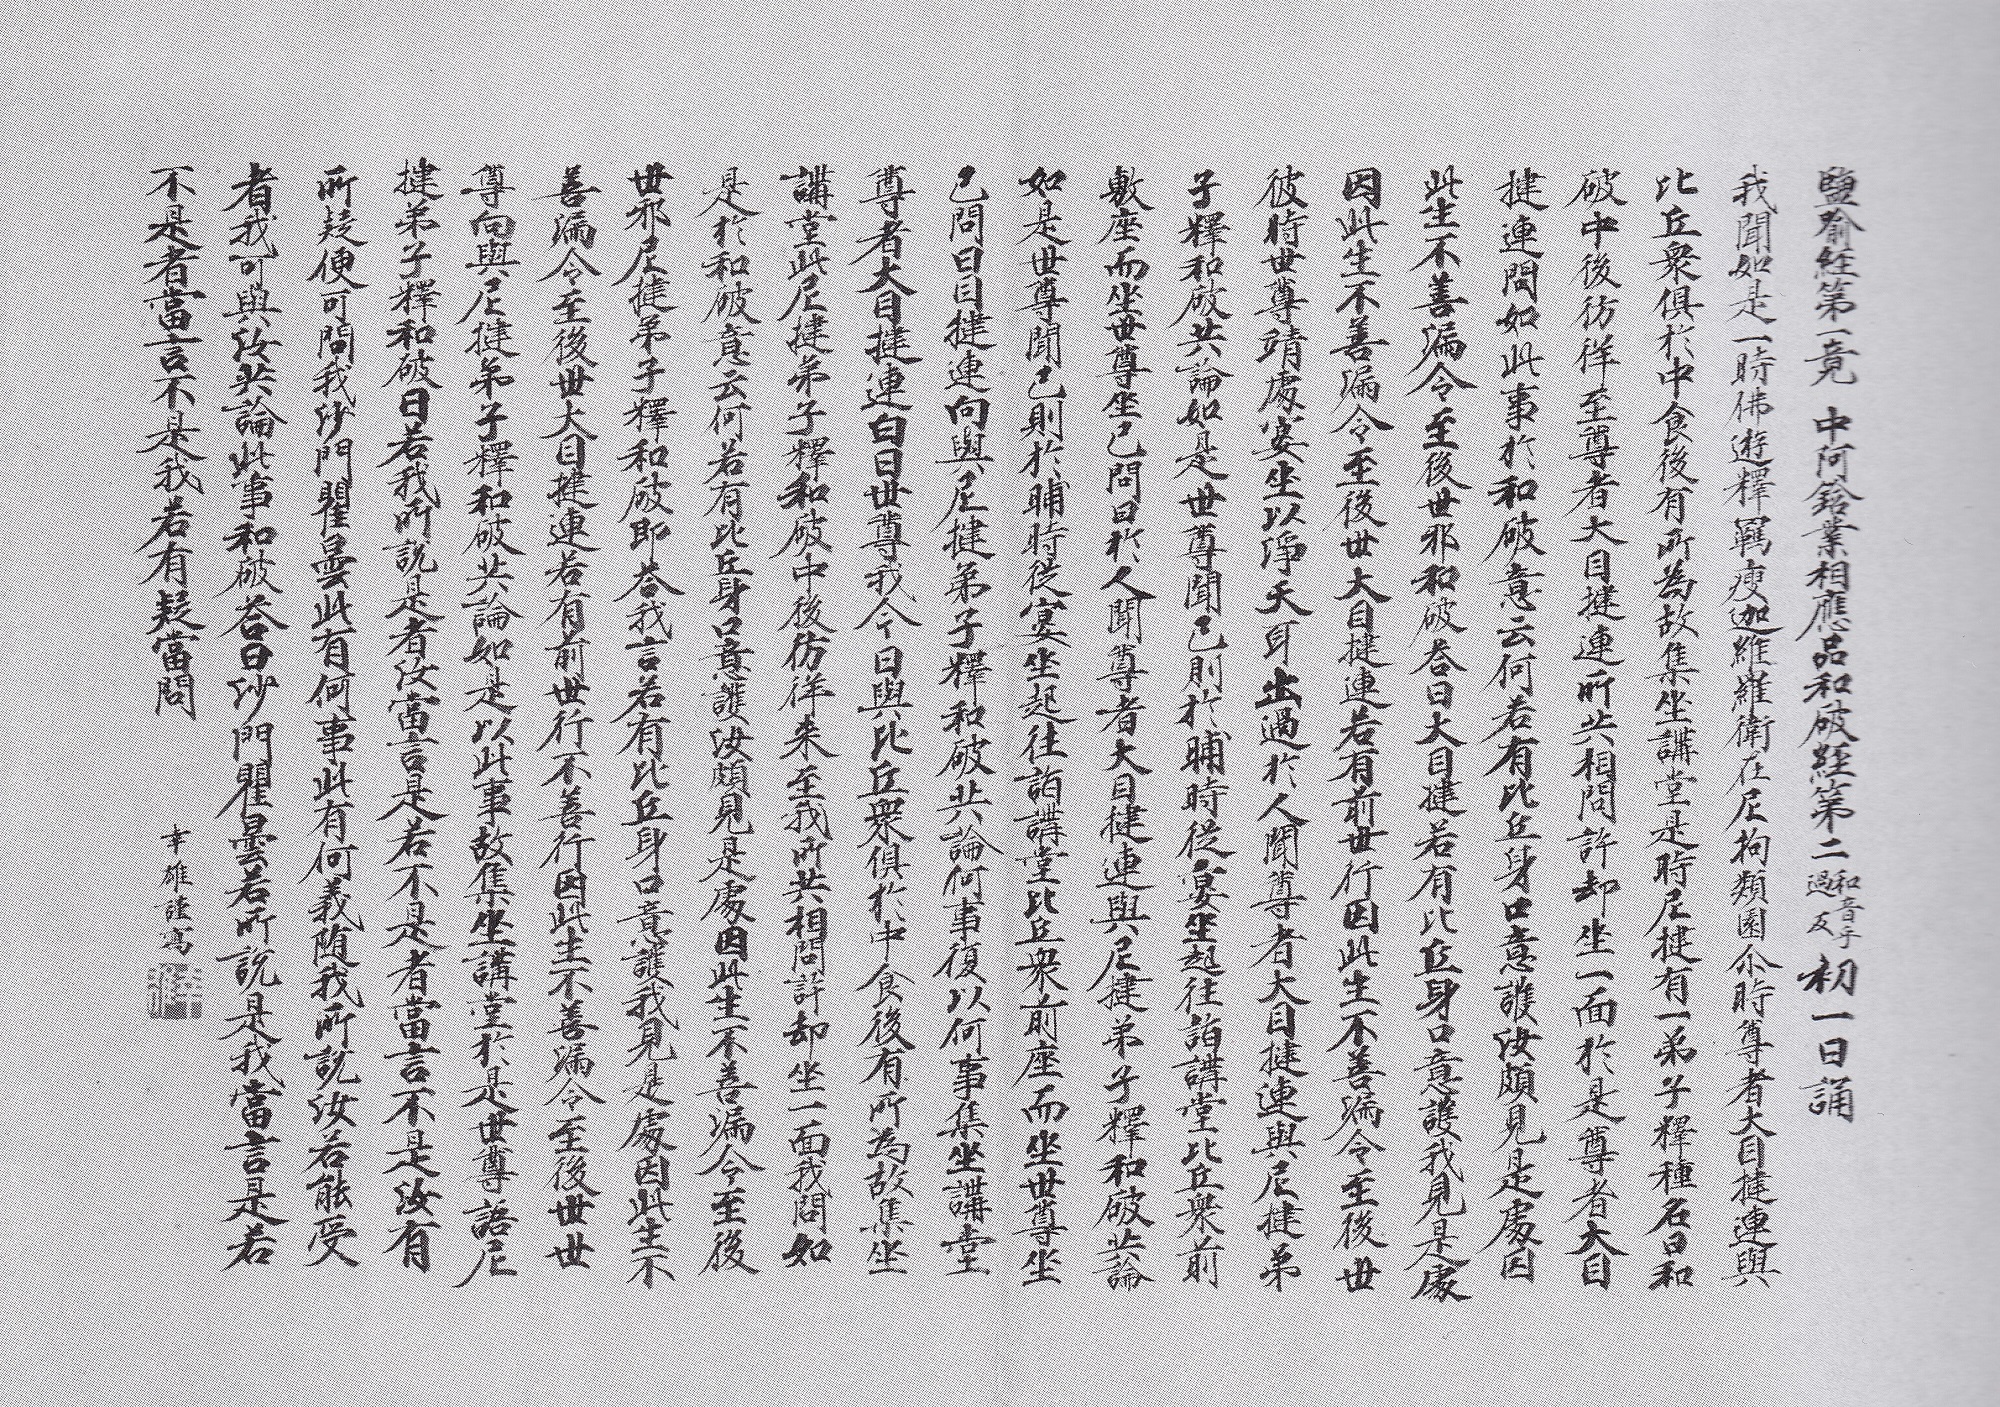 鹽喻經第一竟　中阿鋡業相應品和破經第二 和音乎過反 初一日誦
我聞如是一時佛遊釋羇瘦迦維羅衛在尼拘類園尒時尊者大目揵連與
比丘衆俱於中食後有所為故集坐講堂是時尼揵有一弟子釋種名曰和
破中後彷徉至尊者大目揵連所共相問訊却坐一面於是尊者大目
揵連問如此事於和破意云何若有比丘身口意護汝頗見是處因
此生不善漏令至後世耶和破荅曰大目揵若有比丘身口意護我見是處
因此生不善漏令至後世大目揵連若有前世行因此生不善漏令至後世
彼時世尊靖處宴坐以淨天耳出過於人聞尊者大目揵連與尼揵弟
子釋和破共論如是世尊聞已則於晡時從宴坐起往詣講堂比丘衆前
敷座而坐世尊坐已問曰於人聞尊者大目揵連與尼揵弟子釋和破共論
如是世尊聞已則於晡時從宴坐起往詣講堂比丘衆前座而坐世尊坐
已問曰目揵連向與尼揵弟子釋和破共論何事復以何事集坐講堂
尊者大目揵連白曰世尊我今日與比丘衆俱於中食後有所為故集坐
講堂此尼揵弟子釋和破中後彷徉来至我所共相問訊却坐一面我問如
是於和破意云何若有比丘身口意護汝頗見是處因此生不善漏令至後
世邪尼揵弟子釋和破即荅我言若有比丘身口意護我見是處因此生不
善漏令至後世大目揵連若有前世行不善行因此生不善漏令至後世世
尊向與尼揵弟子釋和破共論如是以此事故集坐講堂於是世尊語尼
揵弟子釋和破曰若我所說是者汝當言是若不是者當言不是汝有
所疑便可問我沙門瞿曇此有何事此有何義随我所說汝若能受
者我可與汝共論此事和破荅曰沙門瞿曇若所說是我當言是若
不是者當言不是我若有疑當問
幸雄謹寫